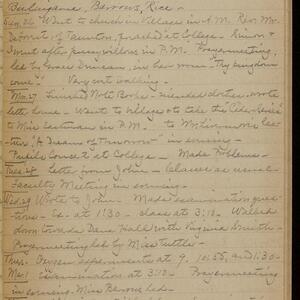 Burlingame, Barrows, Rice -
Sun. 26 Went to church in Village in A.M. Rev. Mr.
of Taunton, preached at College.
went after pussy willows in P.M. Prayermeeting,
led by Grace Duncan, in her room.
come. Very wet walking.
Mon. 27 Finished Note Books - mended clothes, wrote
letter home - Went to Village to take the
to Miss Eastman in P.M. to Mr. lec-
ture, "A Dream of Tomorrow" in evening -
at College - Made Problems -
Tues. 28 Letter from John - Classes as usual -
Faculty Meeting in evening -
Wed. 29 Wrote to John - Made examination ques-
tions - Ex. at 11:30 - class at 3:15. Walked
down towards Dana Hall with Virginia Smith -
Prayermeeting led by Miss Tuttle -
Thur. Oxygen experiments at 9, 10:55, and 11:30 -
examination at 3:15 - Prayermeeting
in evening. Miss Barrows led -